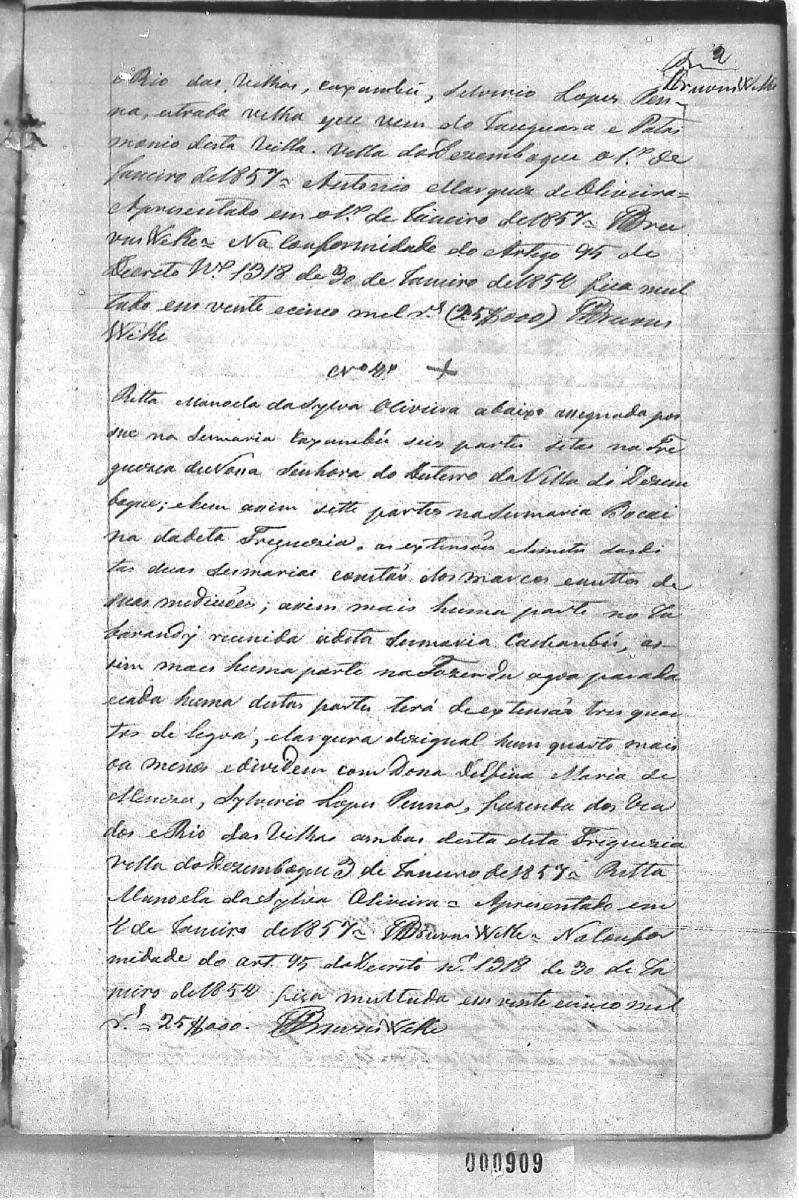 2
Brunswike
e Rio das Velhas, Caxambú, Silverio Lopes Pen-
na, estrada velha que vem do Tauquara e Patri
monio desta Villa. Villa do Dezemboque o 1.º de
Janeiro de 1857= Antonio Marques de Oliveira=
Apresentado em o 1.º de Janeiro de 1857=
Na Conformidade do Artigo 95 do
Decreto Nº 1318 de 30 de Janeiro de 1854 fica mul
tado em vente e cinco mel r.s (25$000)
Nº 4º +
Ritta Manoela da Sylva Oliveira abaixo assegnada pos
sue na Sesmaria Caxambú seis partes sitas na Fre
guezia de Nossa Senhora do Desterro da Villa do Dezem
boque; e bem assim sette partes na Sesmaria Bocai
na da deta Freguezia, as extensões e lemites das di
tas duas Sesmarias constão dos marcos e auttos de
suas medições; assim mais huma parte no Ja
barandy reunida a deta Sesmaria Cachambú, as-
sim mais huma parte na Fazenda agoa parada
e cada huma destas partes terá de extensão tres quar
tos de legoa, e largura desigual hum quarto mais
ou menos e dividem com Dona Delfina Maria de
Menezes, Sylverio Lopes Penna, fazenda dos Vea
dos e Rio das Velhas ambas desta deta Freguezia
Villa do Dezemboque 3 de Janeiro de 1857= Ritta
Manoela da Sylva Oliveira= Apresentado em
4 de Janeiro de 1857= Na Confor
midade do art. 95 do Decreto n.º 1318 de 30 de Ja
neiro de 1854 fica multada em vente e cinco mel
r.s= 25$000.
000909